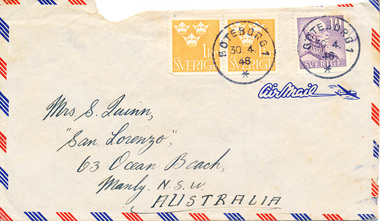 1 K
SVERIGE
SVERIGE
GÖTEBORG 1
30. 4.
46
GÖTEBORG 1
4.
46
SVERIGE
Air Mail
Mrs S. Quinn,
"San Lorenzo",
63 Ocean Beach,
Manly. N.S.W.
AUSTRALIA